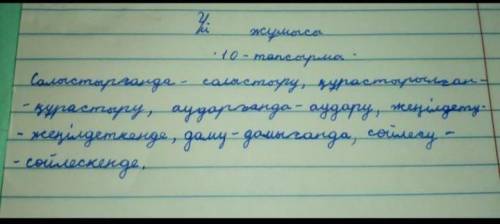 Үй жұмысы
10-тапсырма
Салыстырғанда - салыстыру, құрастырылған-
- құрастыру, аударғанда - аудару, жеңілдету-
- жеңілдеткенде, даму - дамығанда, сөйлесу -
- сөйлескенде.